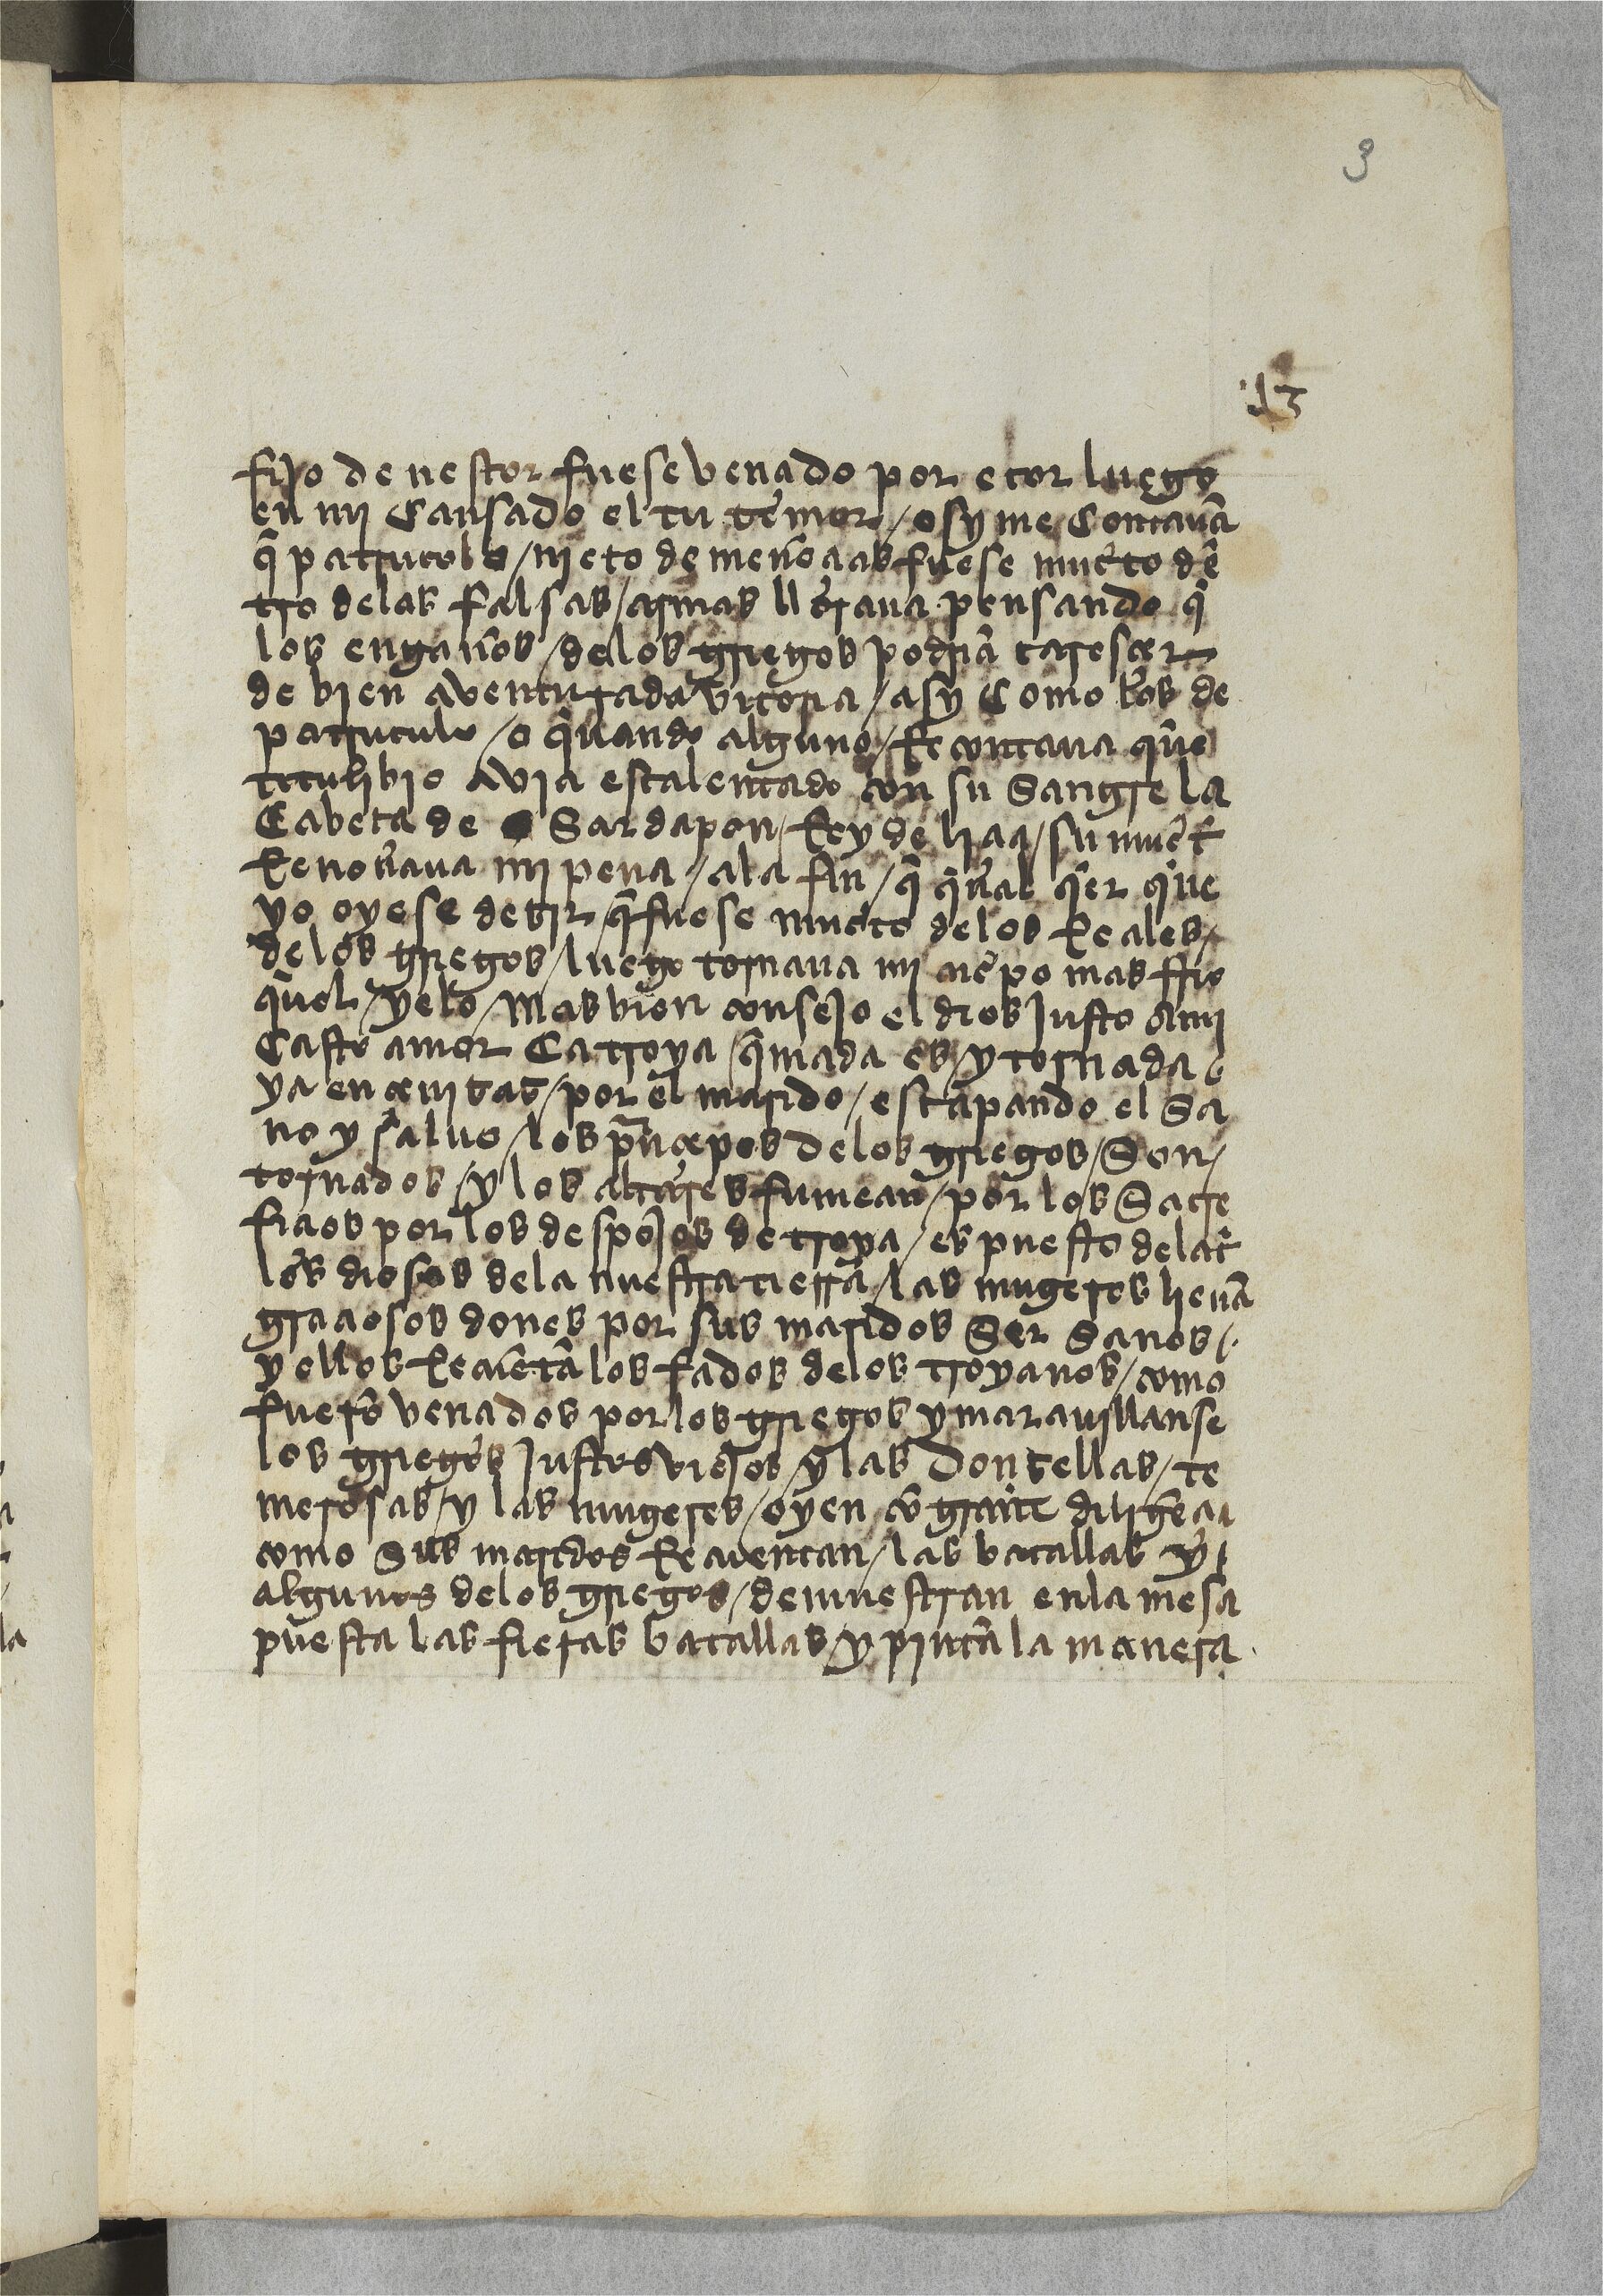 3
fijo de nestor fuese vençido por etor luego
en mi Causado el tu temor / o sy me Contauã
q̃ patrucolo / nieto de menoçias fuese mũeto dẽ
tro delas falsas / armas lloraua pensando q̃
los engaños / delos griegos podriã caresçer
de bien auenturada vitoria / asy Como los de
patruculo / o quando alguno / Recontaua que
titulibio avia escalentado con su Sangre la
Cabeça de Sardapon / Rey de liçia / su mũet
Renouaua mi pena / ala fin / q̃ qual q̃er que
yo oyese dezir / q̃ fuese mũeto delos Reales /
delos griegos / luego tornaua mi cuẽpo mas frio
quel / yelo / Mas bien consejo el dios justo a mi
Casto amor Ca troya / q̃mada es / y tornada e
ya en çenizas / por el marido / escapando el Sa
no y saluo / los prinçepes delos griegos / Son /
tornados / y los altares fumean / por los Sacre
fiçios por los despojos de troya / es puesto delãt
los dioses dela nuestra tierra / las mugeres lieuã
graçiosos dones por sus maridos Ser Sanos /
y ellos Recuẽtã los fados delos troyanos / como
fuerõ vençidos por los griegos y marauillanse
los griegos justos viejos / y las donzellas / te
merosas / y las mugeres / oyen cõ grant diligẽçia
como Sus maridos Recuentan / las batallas y
algunos delos griegos / demuestran enla mesa
puesta las fieras batallas / y pintã la manera